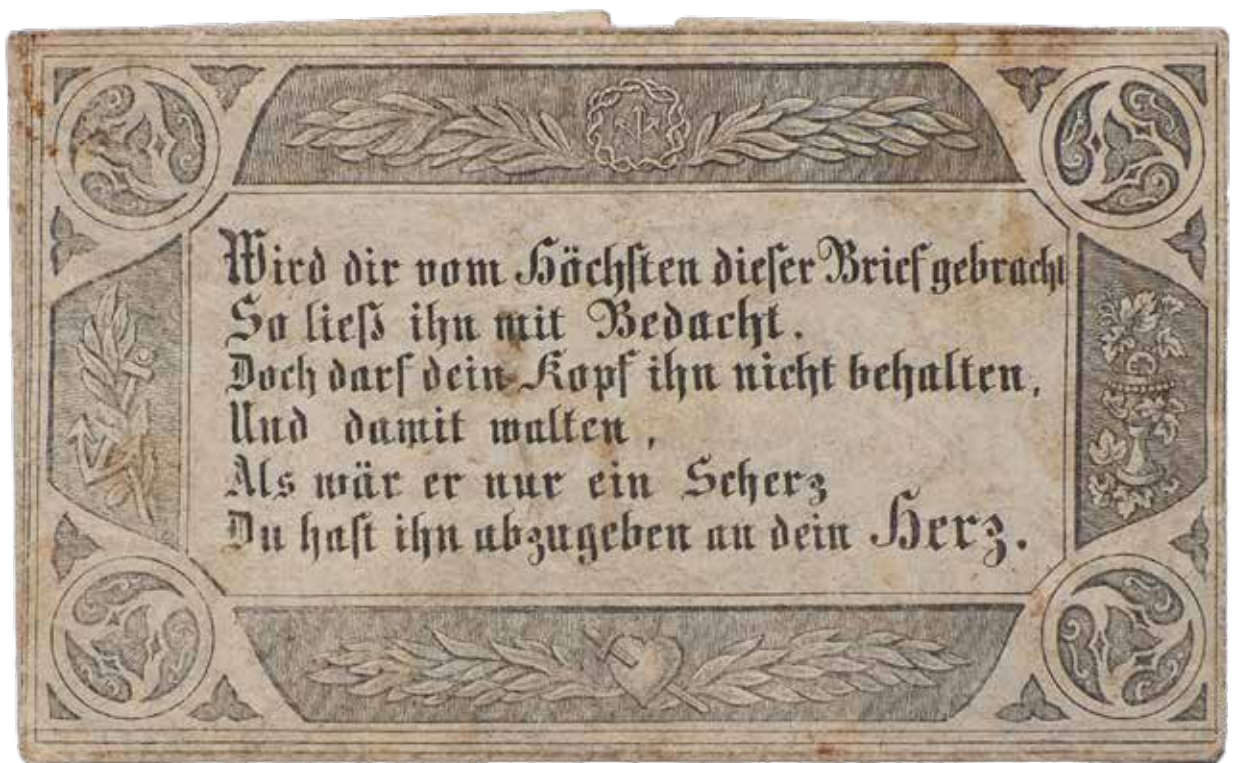 Wird dir vom Höchsten dieser Brief gebracht
So ließ ihn mit Bedacht.
Doch darf dein Kopf ihn nicht behalten,
Und damit walten,
Als wär er nur ein Scherz
Du hast ihn abzugeben an dein Herz.